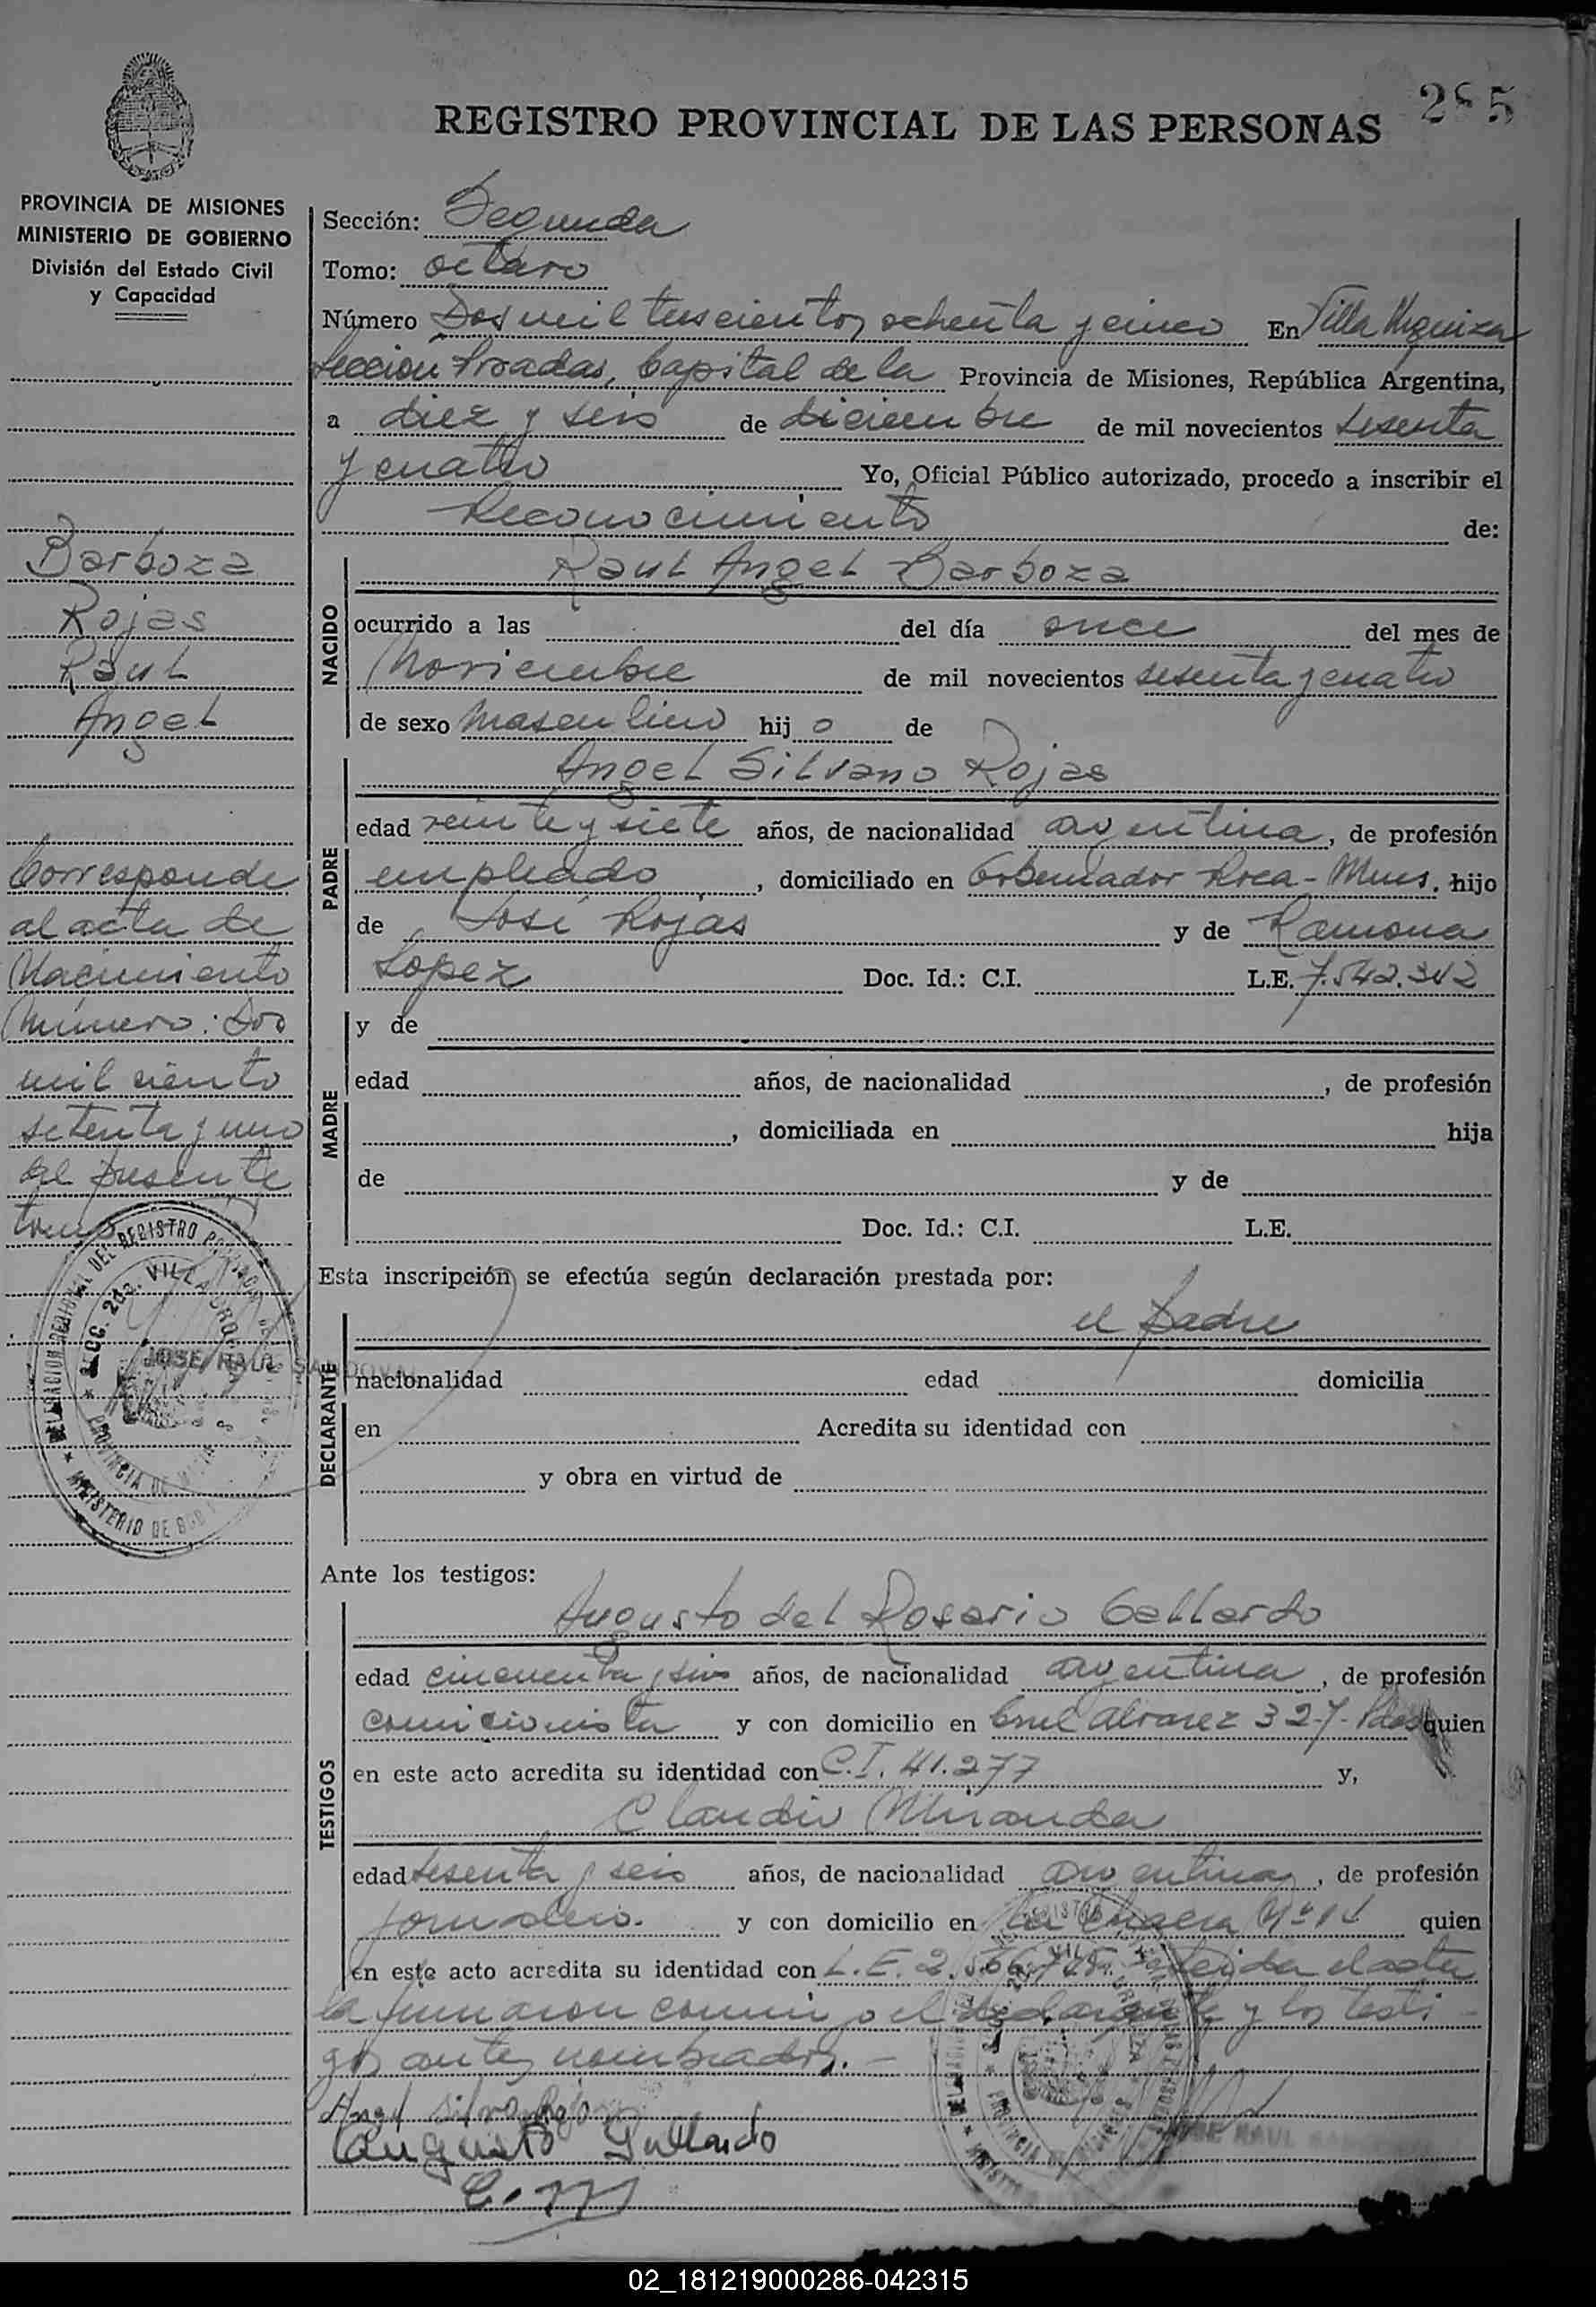 285
REGISTRO PROVINCIAL DE LAS PERSONAS
PROVINCIA DE MISIONES
MINISTERIO DE GOBIERNO
División del Estado Civil
y Capacidad
Barboza
Rojas
Raul
Angel
Corresponde
al acta de
Nacimiento
Número: Dos
mil ciento
setenta y uno
del presente
tomo
DELEGACION DEL REGISTRO
SECC. 2da. VILLA URQUIZA
PROVINCIA DE
MINISTERIO DE
JOSE RAUL SANDOVAL
Sección: Segunda
Tomo: octavo
Número Dos mil trescientos ochenta y cinco En Villa Urquiza
Seccion Posadas, Capital de la Provincia de Misiones, República Argentina,
a diez y seis de diciembre de mil novecientos sesenta
y cuatro Yo, Oficial Público autorizado, procedo a inscribir el
Reconocimiento de:
NACIDO
Raul Angel Barboza
ocurrido a las del día once del mes de
Noviembre de mil novecientos sesenta y cuatro
de sexo masculino hijo de
PADRE
Angel Silvano Rojas
edad veinte y siete años, de nacionalidad argentina, de profesión
empleado, domiciliado en Gobernador Roca - Mnes. hijo
de José Rojas y de Ramona
Lopez Doc. Id.: C.I. L.E. 7.542.342
MADRE
y de
edad años, de nacionalidad , de profesión
, domiciliada en hija
de y de
Doc. Id.: C.I. L.E.
Esta inscripción se efectúa según declaración prestada por:
DECLARANTE
el padre
nacionalidad edad domicilia
en Acredita su identidad con
y obra en virtud de
Ante los testigos:
TESTIGOS
Augusto del Rosario Gallardo
edad cincuenta y seis años, de nacionalidad argentina, de profesión
comicionista y con domicilio en Cnel Alvarez 327- Pdas quien
en este acto acredita su identidad con C.I. 41.277 y,
Claudio Miranda
edad sesenta y seis años, de nacionalidad argentina, de profesión
jornalero. y con domicilio en la Chacra Nº quien
en este acto acredita su identidad con L.E. 2. Leida el acta
la firmaron conmigo el declarante y los testi-
gos antes nombrados.-
Angel Silvano Rojas
Augusto Gallardo
C. M
JOSE RAUL
02_181219000286-042315